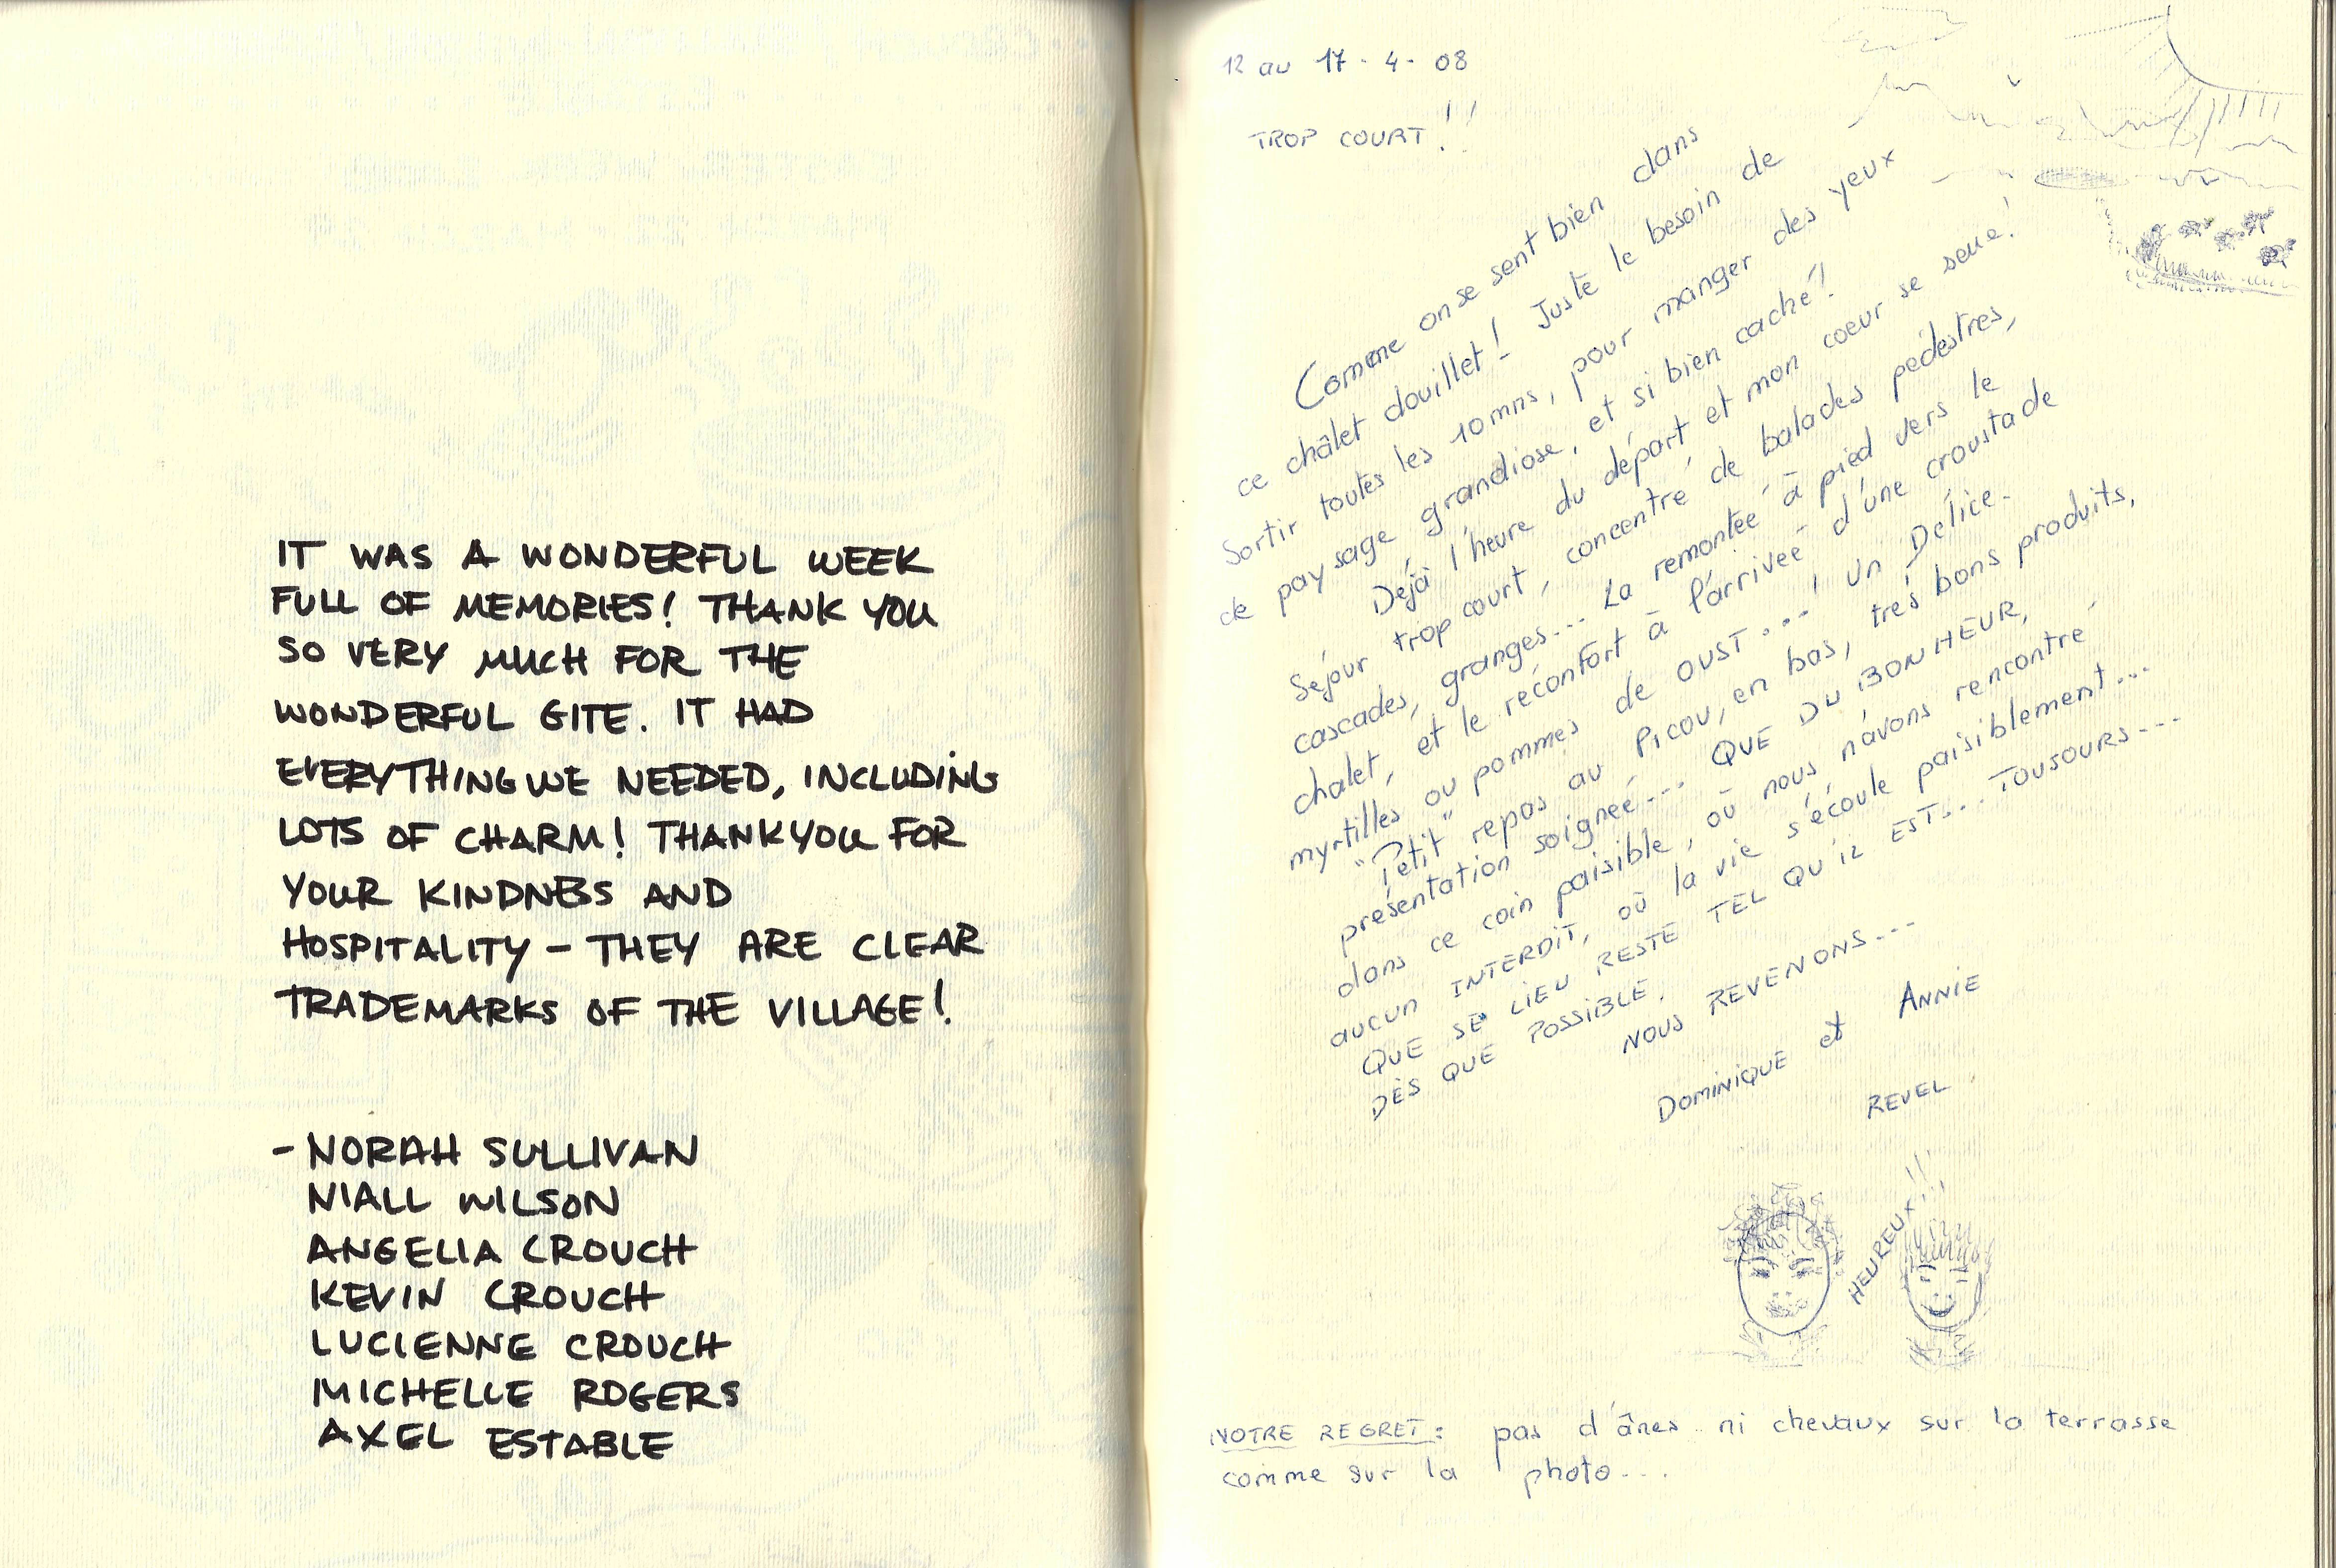 IT WAS A WONDERFUL WEEK
FULL OF MEMORIES! THANK YOU
SO VERY MUCH FOR THE
WONDERFUL GITE. IT HAD
EVERYTHING WE NEEDED, INCLUDING
LOTS OF CHARM! THANK YOU FOR
YOUR KINDNESS AND
HOSPITALITY – THEY ARE CLEAR
TRADEMARKS OF THE VILLAGE!
- NORAH SULLIVAN
NIALL WILSON
ANGELIA CROUCH
KEVIN CROUCH
LUCIENNE CROUCH
MICHELLE ROGERS
AXEL ESTABLE
12 au 17 - 4 - 08
TROP COURT!!!
Comme on se sent bien dans
ce châlet douillet! Juste le besoin de
Sortir toutes les 10 mns, pour manger des yeux
de paysage grandiose, et si bien caché!!
Déjà l'heure du départ et mon coeur se serre!
Séjour trop court, concentré de balades pédestres,
cascades, granges... La remontée à pied vers le
chalet, et le réconfort à l'arrivée - d'une croustade
myrtilles ou pommes de OUST...! Un Délice.
"Petit" repas au Picou, en bas, très bons produits,
présentation soignée... QUE DU BONHEUR,
dans ce coin paisible, où nous n'avons rencontré
aucun INTERDIT, où la vie s'écoule paisiblement...
QUE SE LIEU RESTE TEL QU'IL EST... TOUJOURS...
DÈS QUE POSSIBLE.
NOUS REVENONS...
DOMINIQUE et ANNIE
REVEL.
HEUREUX!!!
NOTRE REGRET: pas d'ânes ni chevaux sur la terrasse
comme sur la photo...